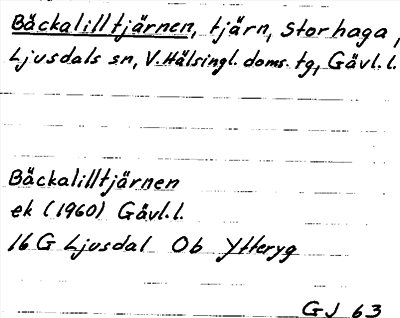 Bäckalilltjärnen, tjärn, Storhaga,
Ljusdals sn, V. Hälsingl. doms. tg, Gävl. l.
Bäckalilltjärnen
ek (1960) Gävl. l.
16 G Ljusdal Ob Ytteryg
GJ 63